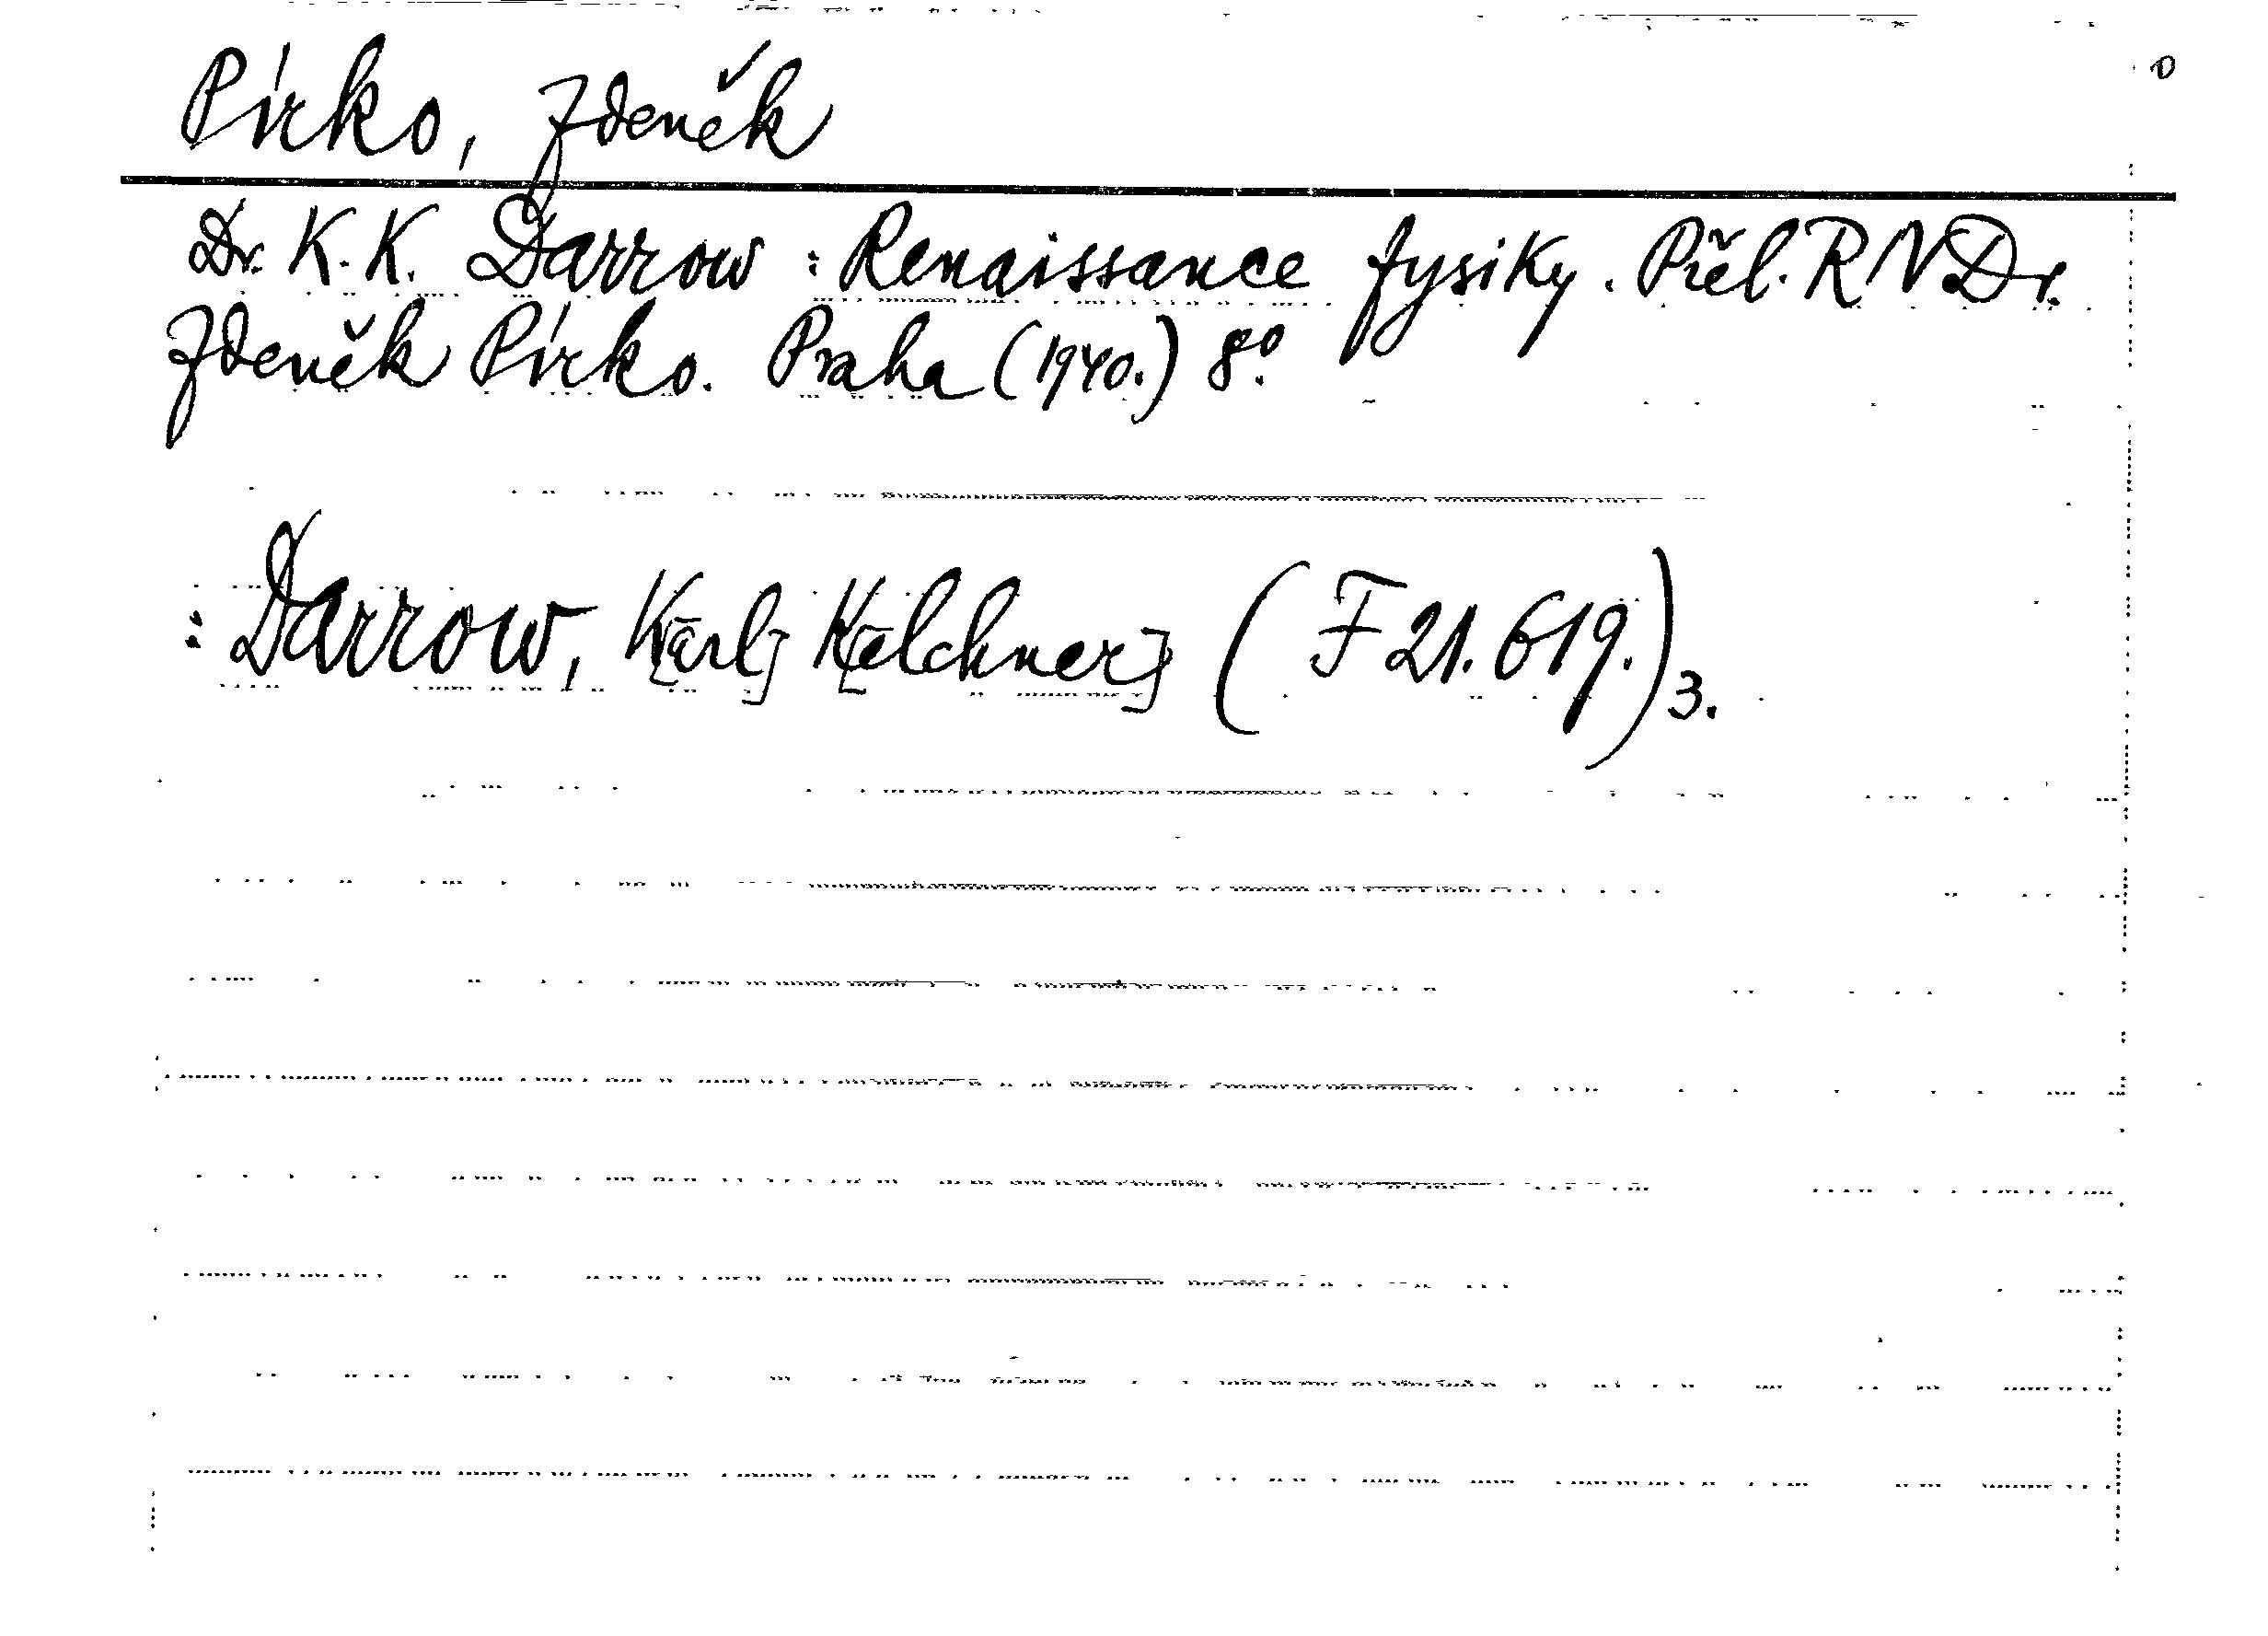 Pírko, Zdeněk
Dr. K. K. Darrow : Renaissance fysiky. Přel. RNDr.
Zdeněk Pírko. Praha (1940.) 8º.
: Darrow, K[arl] K[elchner] (F 21.619.) 3.